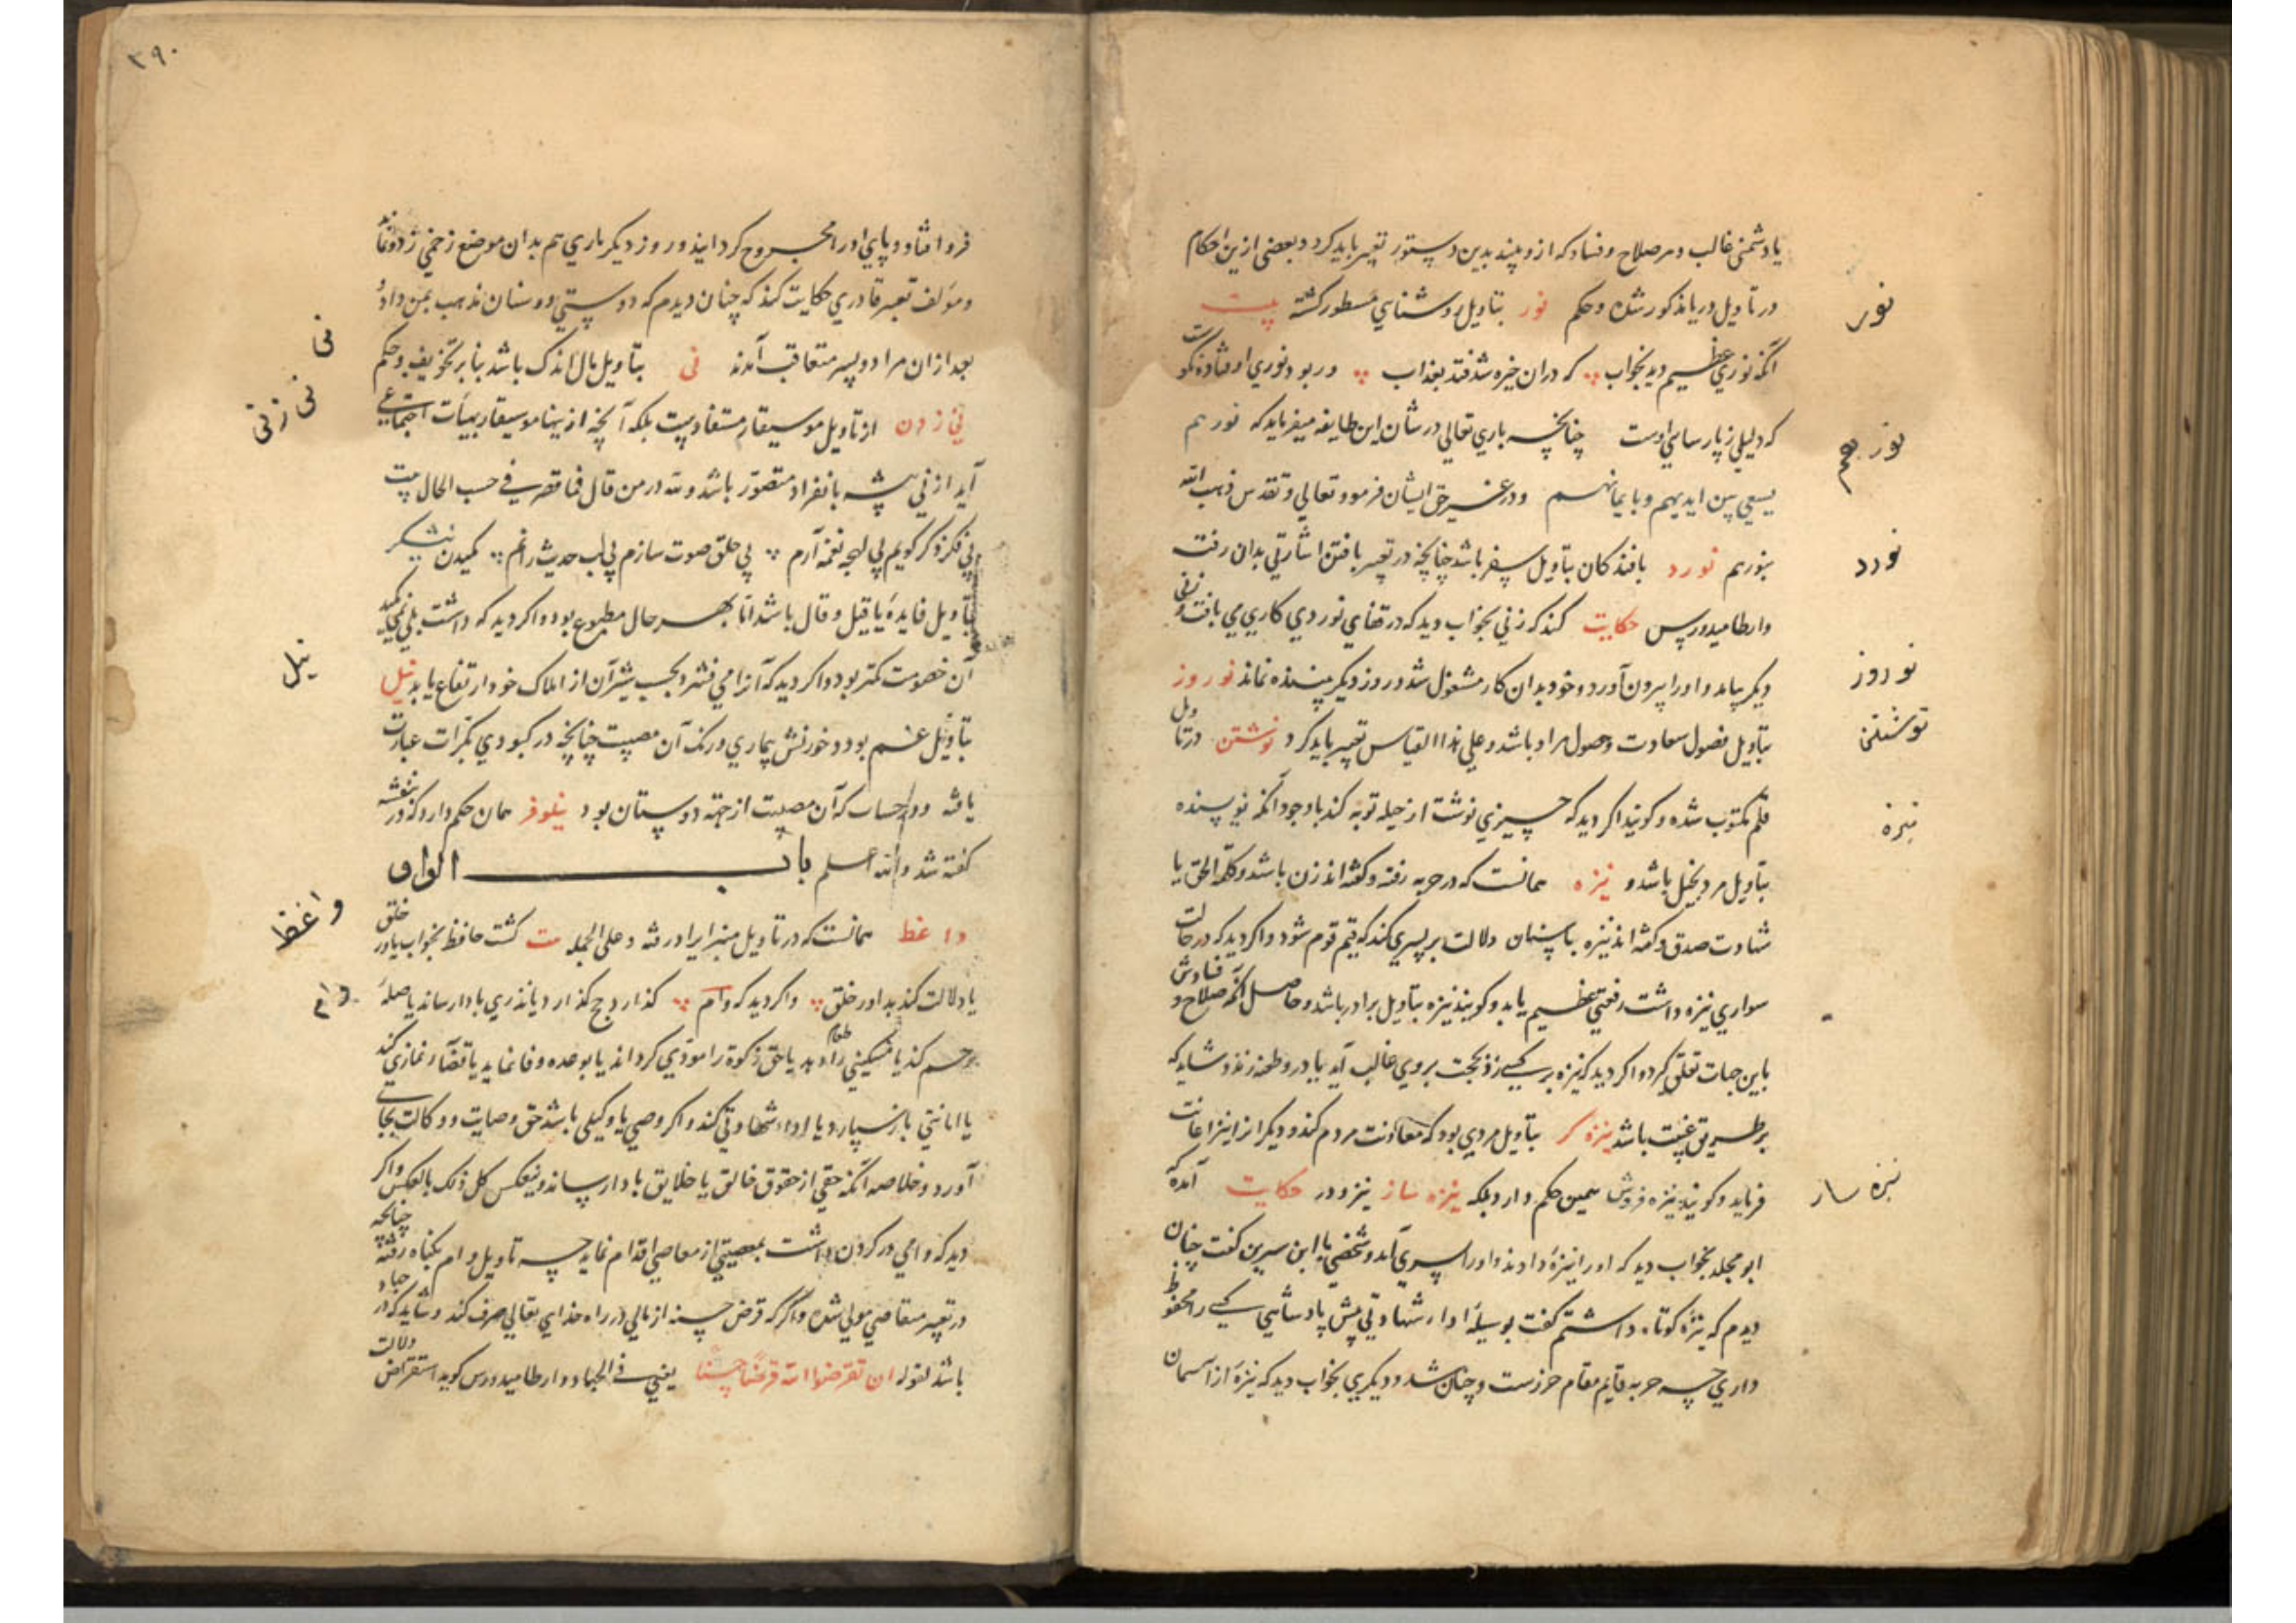 یا دشمنی غالب و هر صلاح و فساد که ازو بیند بدین دستور تعبیر باید کرد و بعضی ازین احکام
نور
در تاویل دریا مذکور شده و حکم نور بتاویل روشنایی مسطور کشته بیت
انکه نوری عظیم دید بخواب که دران خیره شد فتد بعذاب ور بود نوری اوفتاده
که دلیلی ز پارسایی اوست چنانچه باری تعالی در شان این طایفه میفرماید که نورهم
نورهم
یسعی بین ایدیهم و بایمانهم و در غیر حق ایشان فرمود تعالی و تقدس ذهب الله
نورد
بنورهم نورد بافندکان بتاویل سفر باشد چنانچه در تعبیر بافتن اشارتی بدان رفت
وارطامیدورس حکایت کند که زنی بخواب دید که در قضای نوردی کاری می بافت و زنی
نوروز
دیکر بیامد و او را بیرون آورد و خود بدان کار مشغول شد و روز دیکر بیننده نماند نوروز
نوشتن
بتاویل فصول سعادت و حصول مراد باشد و علی هذا القیاس تعبیر باید کرد نوشتن در تاویل
قلم مکتوب شده و کویند اکر دید که چیزی نوشت از حیله توبه کند با وجود انکه نویسنده
نیزه
بتاویل مرد بخیل باشد و نیزه همانست که در حربه رفته و کفته اند زن باشد و کلمة الحق یا
شهادت صدق و کفته اند نیزه با سنان دلالت بر پسری کند که قیم قوم شود و اکر دید که در حالت
سواری نیزه داشت رفعتی عظیم یابد و کویند نیزه بتاویل برادر باشد و حاصل انکه صلاح و فسادش
باین جهات تعلق کیرد و اکر دید که نیزه بر کسی زد بحجت بر وی غالب آید یا در و طعنه زند و شاید که
بر طریق غیبت باشد نیزه کر بتاویل مردی بود که معاونت مردم کند و دیکرانرا نیز اعانت
نیزه ساز
فرماید و کویند نیزه فروش همین حکم دارد بلکه نیزه ساز نیز و در حکایت آمده که
ابو مجلد بخواب دید که او را نیزه دادند و او را پسری آمد و شخصی با ابن سیرین کفت چنان
دیدم که نیزه کوتاه داشتم کفت بوسیله اداء شهادتی پیش پادشاهی کسی را محفوظ
داری چه حربه قایم مقام حرزست و چنان شد و دیکری بخواب دید که نیزه از آسمان
۳۹۰
فرو افتاد و پایی او را مجروح کردانید و روز دیکر ماری هم بدان موضع زخمی زد
و مؤلف تعبیر قادری حکایت کند که چنان دیدم که دوستی دو سنان مذهب بمن داد و
نی
بعد ازان مرا دو پسر متعاقب آمدند نی بتاویل مال اندک باشد بنا بر تخویف و حکم
نی زنی
نی زدن از تاویل موسیقار مستفادست بلکه آنچه ازینها موسیقار بهیأت اجتماعی
آید از نی پیشه بانفراد متصور باشد ولله در من قال فما قصر فی حسب الحال بیت
بی فکر ذکر کویم بی لهجه نغمه آرم بی حلق صوت سازم بی لب حدیث رانم مکیدن نیشکر
بتاویل فایده یا قیل و قال باشد اما بهر حال مطبوع بود و اکر دید که داشت ولی نمی مکید
نیل
آن خصومت کمتر بود و اکر دید که آنرا می فشرد بحسب شیرۀ آن از املاک خود ارتفاع یابد نیل
بتاویل غم بود و خوردنش بیماری و رنک آن مصیبت چنانچه در کبودی بکرات عبارت
یافته و در حساب که آن مصیبت از جهة دوستان بود نیلوفر همان حکم دارد که در بنفشه
کفته شد والله اعلم باب الواو
واعظ
واعظ همانست که در تاویل منبر ایراد رفته و علی الجمله بیت کشت حافظ بخواب یاور خلق
وام
یا دلالت کند بداور خلق و اکر دید که وام کذارد حج کذارد یا نذری بادا رساند یا صلۀ
رحم کند یا مسکینی را طعام دهد یا حق زکوة را مودی کرداند یا بوعده وفا نماید یا قضاء نمازی کند
یا امانتی باز سپارد یا اداء شهادتی کند و اکر وصی یا وکیلی باشد حق وصایت و وکالت بجای
آورد و خلاصه آنکه حقی از حقوق خالق یا خلایق بادا رساند و ینعکس کل ذلک بالعکس و اکر
دید که وامی در کردن داشت بمعصیتی از معاصی اقدام نماید چه تاویل وام بکناه رفته چنانچه
در تعبیر متقاضی مولی شده و اکر که قرض حسنه از مالی در راه خدای تعالی صرف کند و شاید که در جهاد
باشد لقوله ان تقرضوا الله قرضا حسنا یعنی فی الجهاد و ارطامیدورس کوید استقراض دلالت